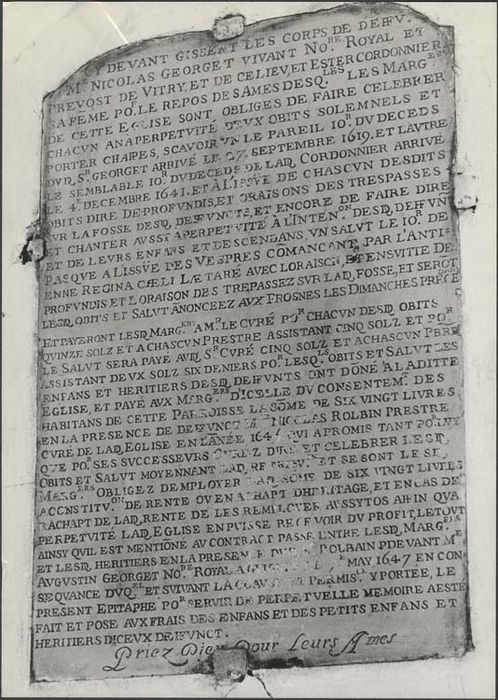 CY DEVANT GISSENT LES CORPS DE DEFFU.
Mᴱ. NICOLAS GEORGET VIVANT Noᴿᴱ ROYAL ET
PREVOST DE VITRY, ET DE CE LIEV, ET ESTER CORDONNIER
SA FEME POᴿ LE REPOS DE SAMES DESQᴸᴱˢ LES MARGᴱᴿˢ
DE CETTE EGLISE SONT OBLIGES DE FAIRE CELEBRER
CHACVN AN A PERPETVITÉ DEVX OBITS SOLEMNELS ET
PORTER CHAPES, SCAVOIR VN LE PAREIL IOᴿ DV DECEDS
DVD. Sᴿ. GEORGET ARRIVÉ LE 27 SEPTEMBRE 1619, ET LAVTRE
LE SEMBLABLE IOᴿ DV DECEDS DE LAD. CORDONNIER ARRIVÉ
LE 4ᴱ DECEMBRE 1641. ET A LISSVE DE CHASCVN DESDITS
OBITS DIRE DE PROFVNDIS, ET ORAISONS DES TRESPASSES
SVR LA FOSSE DESD. DEFFVNCTS, ET ENCORE DE FAIRE DIRE
ET CHANTER AVSSY A PERPETVITÉ A L'INTENᵒᴺ DESD. DEFUNT
ET DE LEVRS ENFANS ET DESCENDANS, VN SALVT LE IOᴿ DE
PASQVE A LISSVE DES VESPRES COMANCANT PAR L'ANTI-
ENNE REGINA CÆLI LÆTARE AVEC LORAISON, ET ENSVITTE DE
PROFVNDIS ET LORAISON DES TREPASSEZ SVR LAD. FOSSE, ET SERÕT
LESD. OBITS ET SALVT ANONCEZ AVX PROSNES LES DIMANCHES PRECEᴰᴱᴺˢ
ET PAYERONT LESD. MARGᴱᴿˢ A Mᴿ LE CVRÉ POᴿ CHACVN DESD. OBITS
QVINZE SOLZ ET A CHASCVN PRESTRE ASSISTANT CINQ SOLZ ET POᴿ
LE SALVT SERA PAYÉ AVD. Sᴿ CVRÉ CINQ SOLZ ET A CHASCVN PBRE
ASSISTANT DEVX SOLZ SIX DENIERS POᴿ LESQᴸˢ OBITS ET SALVT LES
ENFANS ET HERITIERS DESD. DEFFVNTS ONT DÕNÉ A LADITTE
EGLISE, ET PAYÉ AVX MARGᴱᴿˢ DICELLE DV CONSENTEMᵀ. DES
HABITANS DE CETTE PARROISSE LA SÕME DE SIX VINGT LIVRES
EN LA PRESENCE DE DEFFVNCT Mᴱ NICOLAS ROLBIN PRESTRE
CVRÉ DE LAD. EGLISE EN LANÉE 1647 QVI A PROMIS TANT POᴿ LVY
QVE POᴿ SES SVCCESSEVRS CVREZ DIRE ET CELEBRER LESD.
OBITS ET SALVT MOYENNANT LAD. RETRIBVᵒᴺ ET SE SONT LESD.
MARGᴱᴿˢ OBLIGEZ DEMPLOYER LAD. SÕME DE SIX VINGT LIVRES
A CONSTITVᵒᴺ DE RENTE OV EN ACHAPT DHERITAGE, ET EN CAS DE
RACHAPT DE LAD. RENTE DE LES REMPLOYER AVSSYTOS AFFIN QVA
PERPETVITÉ LAD. EGLISE EN PVISSE RECEVOIR DV PROFIT, LE TOVT
AINSY QVIL EST MENTIONÉ AV CONTRACT PASSÉ ENTRE LESD. MARGᴱᴿˢ
ET LESD. HERITIERS EN LA PRESENCE DVD. ROLBAIN PDEVANT Mᴱ
AVGVSTIN GEORGET Noᴿᴱ ROYAL A MAY 1647 EN CON
SEQVANCE DVQᴸ ET SVIVANT LA CLAVSE ET PERMISᴺ Y PORTÉE, LE
PRESENT EPITAPHE POᴿ SERVIR DE PERPETVELLE MEMOIRE A ESTÉ
FAIT ET POSÉ AVX FRAIS DES ENFANS ET DES PETITS ENFANS ET
HERITIERS DICEVX DEFFVNCT.
Priez Dieu Pour Leurs Ames